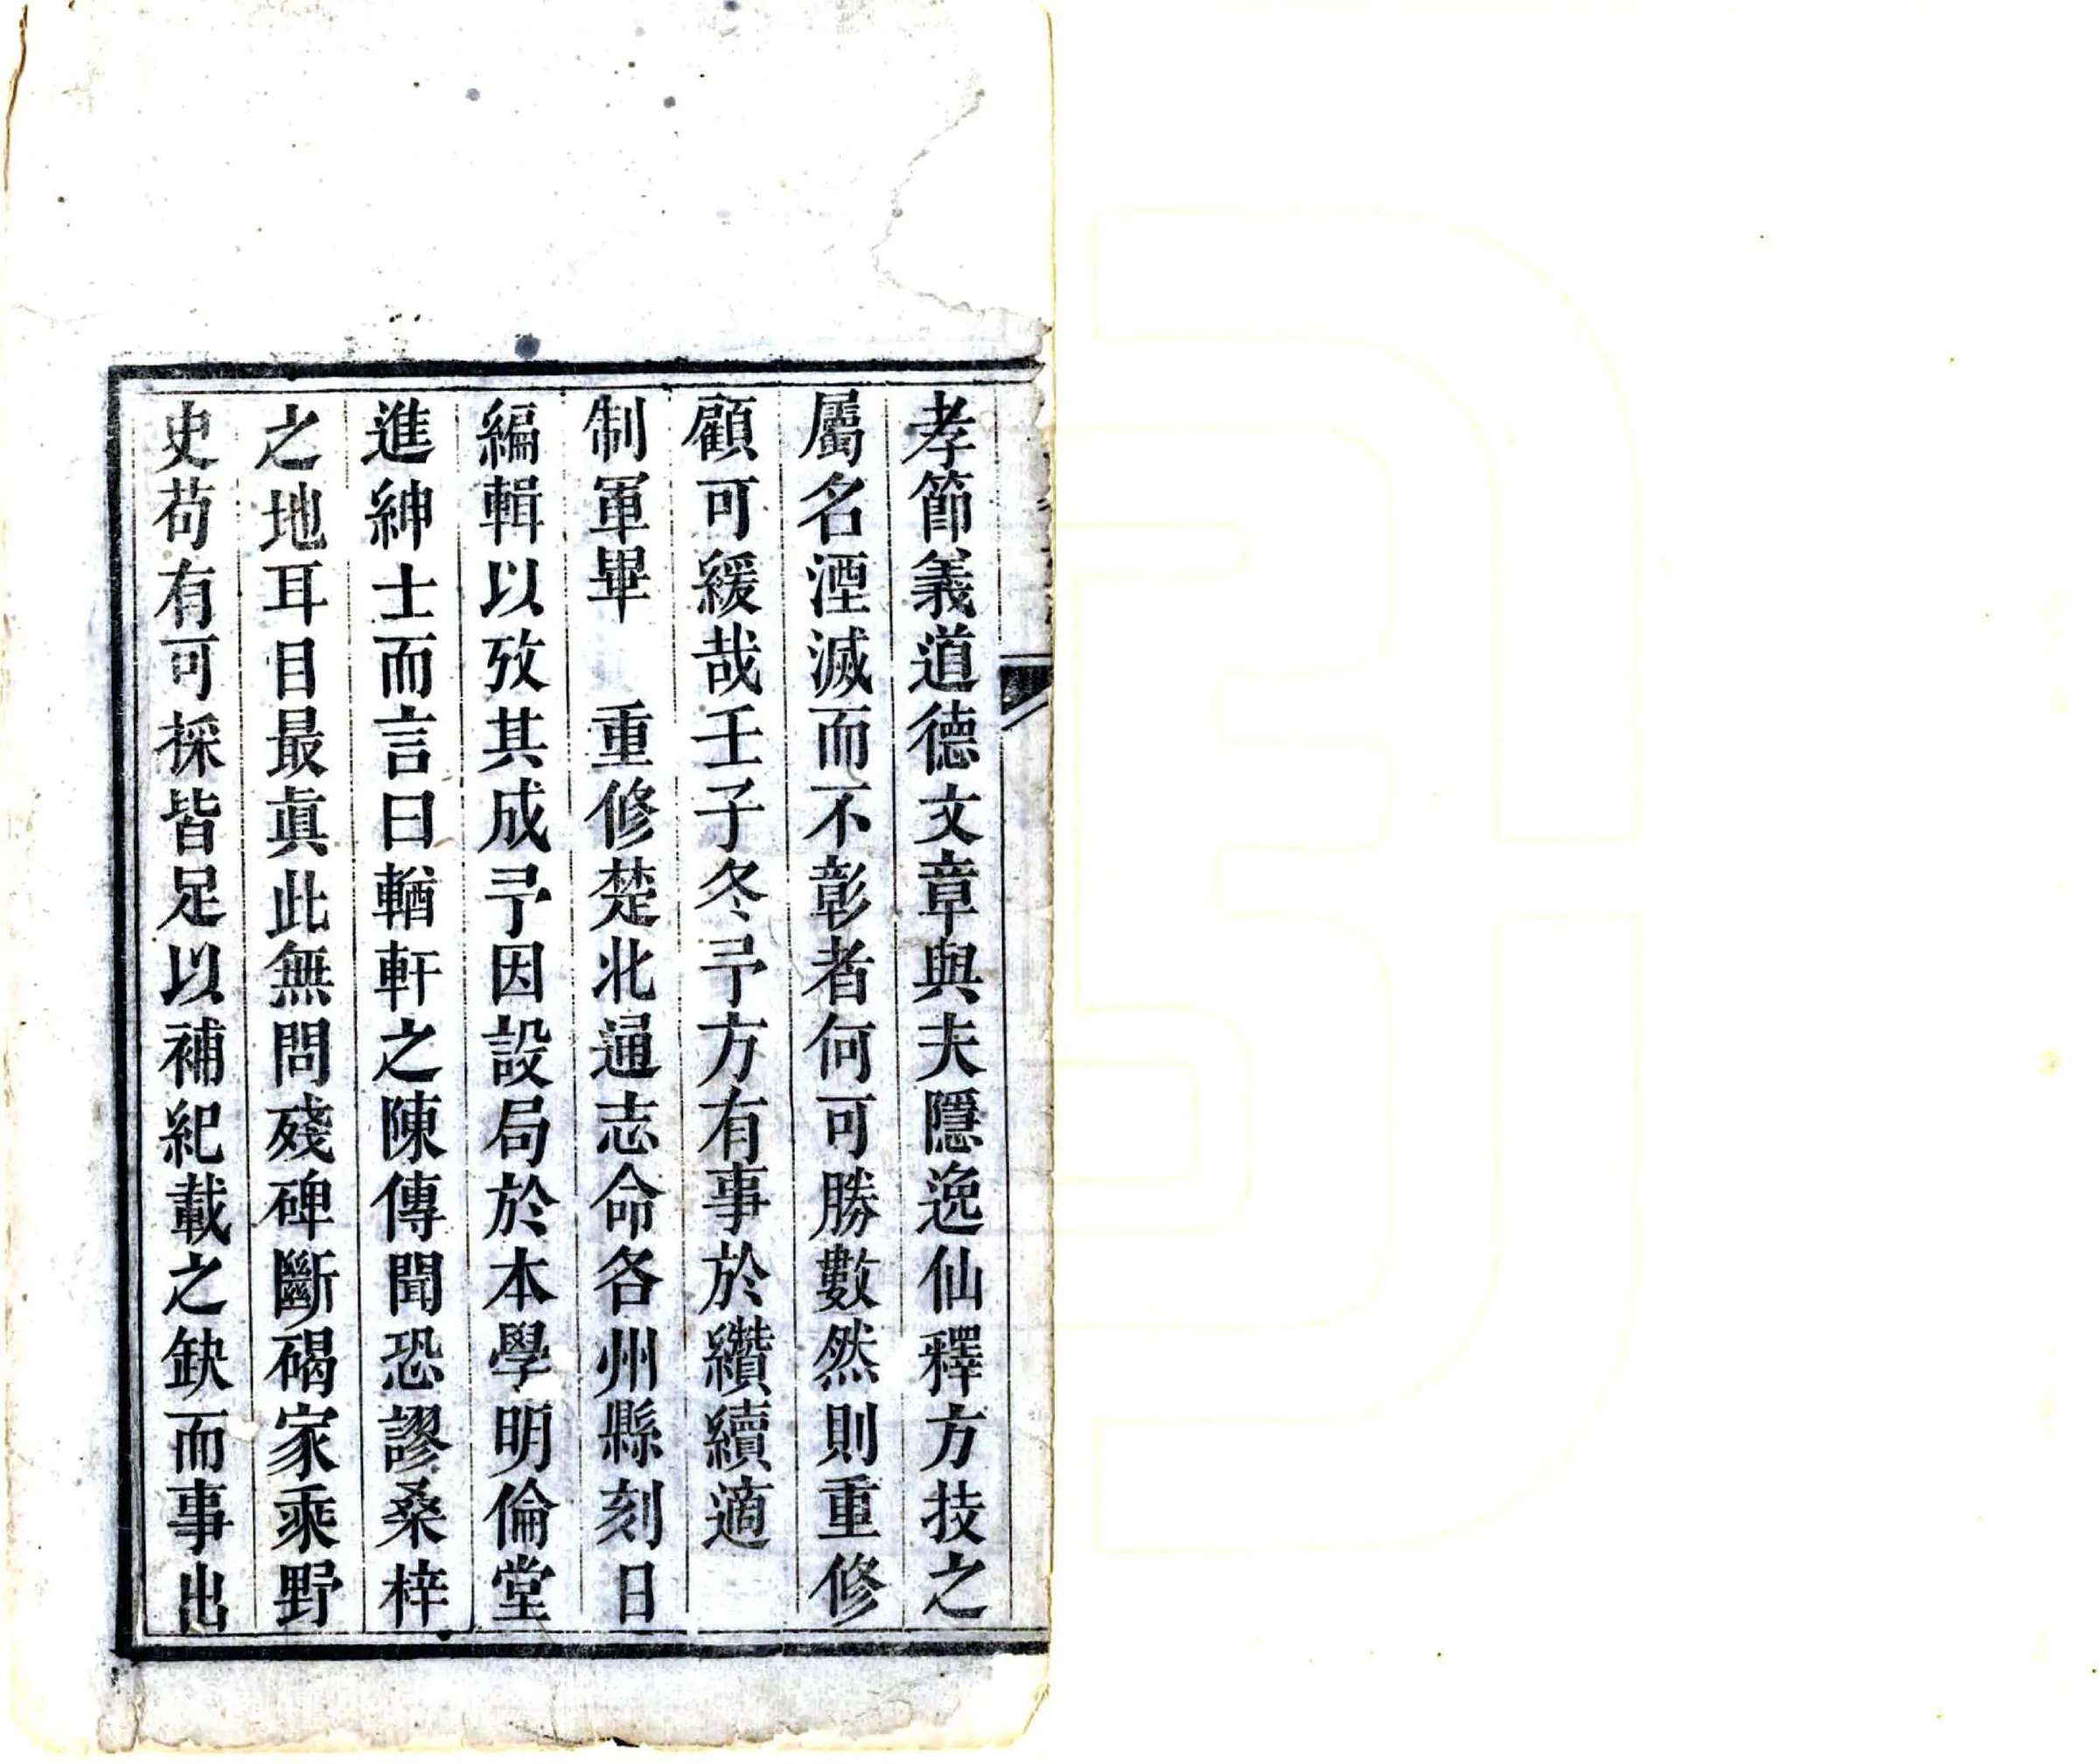 孝節義道德文章與夫隱逸仙釋方技之
屬名湮滅而不彰者何可勝數然則重修
顧可緩哉壬子冬予方有事於纘續適
制軍畢　重修楚北通志命各州縣刻日
編輯以攷其成予因設局於本學明倫堂
進紳士而言曰輶軒之陳傳聞恐謬桑梓
之地耳目最眞此無問殘碑斷碣家乘野
史苟有可採皆足以補紀載之缺而事出